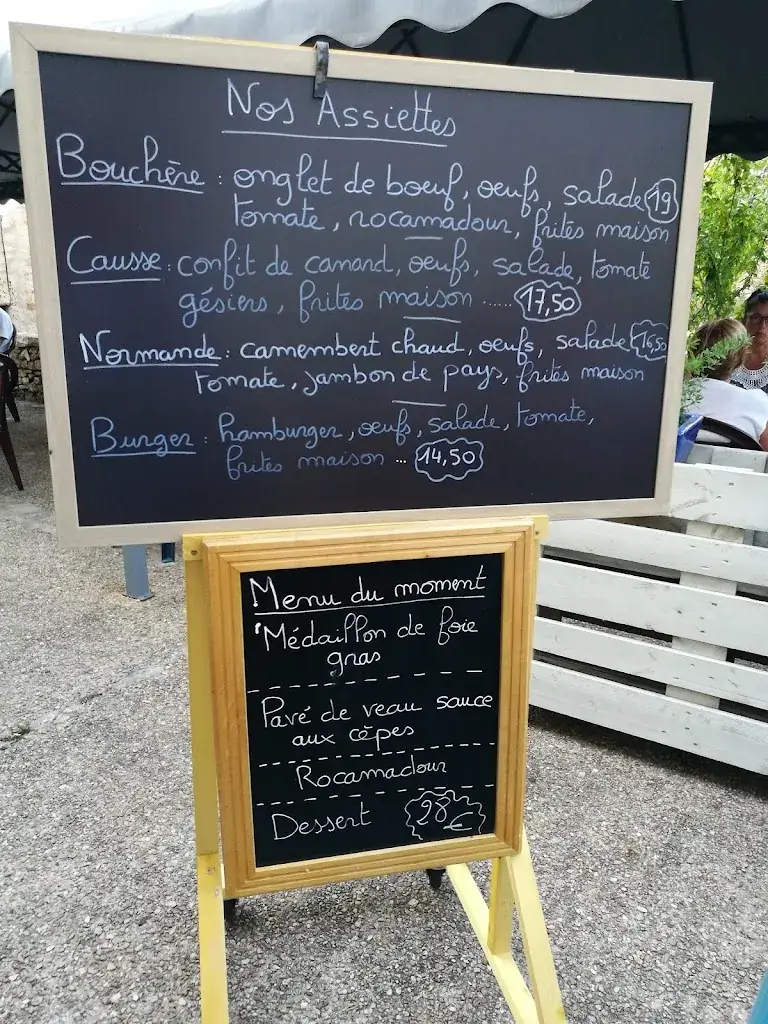 Nos Assiettes
Bouchère : onglet de bœuf, œufs, salade 19
tomate, rocamadour, frites maison
Causse : confit de canard, œufs, salade, tomate
gésiers, frites maison ...... 17,50
Normande : camembert chaud, œufs, salade 16,50
tomate, jambon de pays, frites maison
Burger : hamburger, œufs, salade, tomate,
frites maison ... 14,50
Menu du moment
Médaillon de foie
gras
Pavé de veau sauce
aux cèpes
Rocamadour
Dessert 28 €